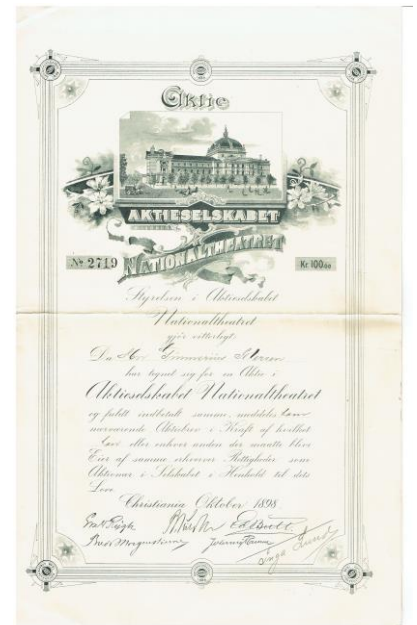 Aktie
AKTIESELSKABET
NATIONALTHEATRET
No 2719
Kr. 100.00
Styrelsen i Aktieselskabet
Nationaltheatret
gjør vitterligt:
Da Hr.
har tegnet sig for en Aktie i
Aktieselskabet Nationaltheatret
og fuldt indbetalt samme, meddeles
nærværende Aktiebrev i Kraft af hvilket
eller enhver anden der maatte blive
Eier af samme erhverver Rettigheder som
Aktionær i Selskabet i Henhold til dets
Love.
Christiania Oktober 1898